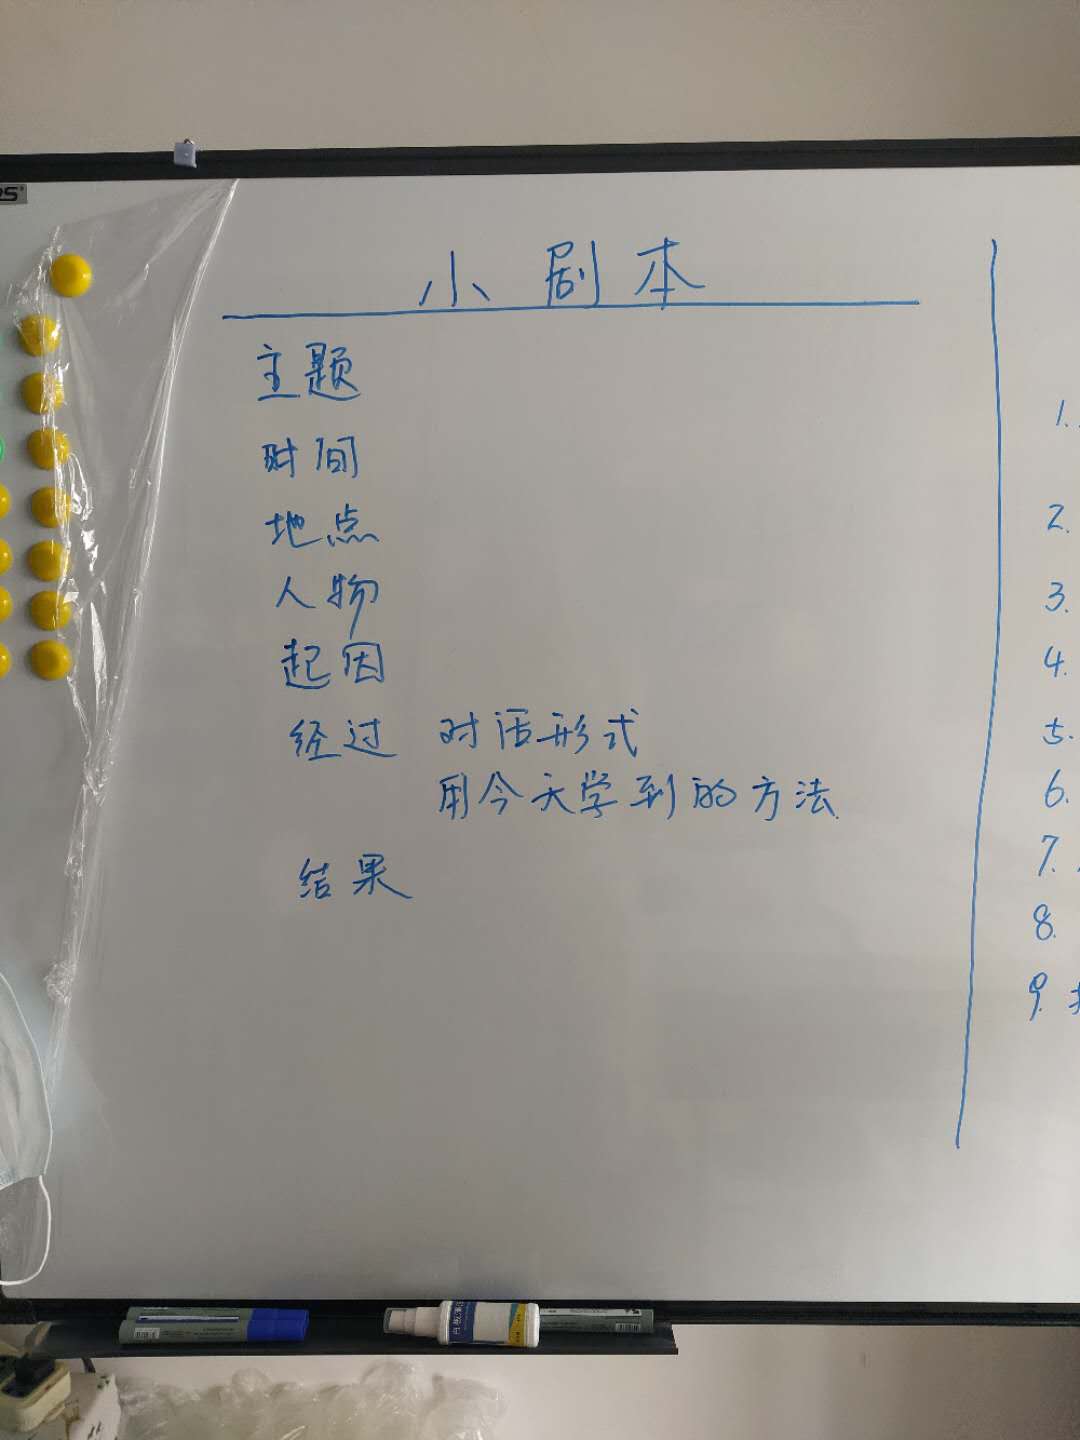 小剧本
主题
时间
地点
人物
起因
经过 对话形式
用今天学到的方法
结果
1.
2.
3.
4.
5.
6.
7.
8.
9.